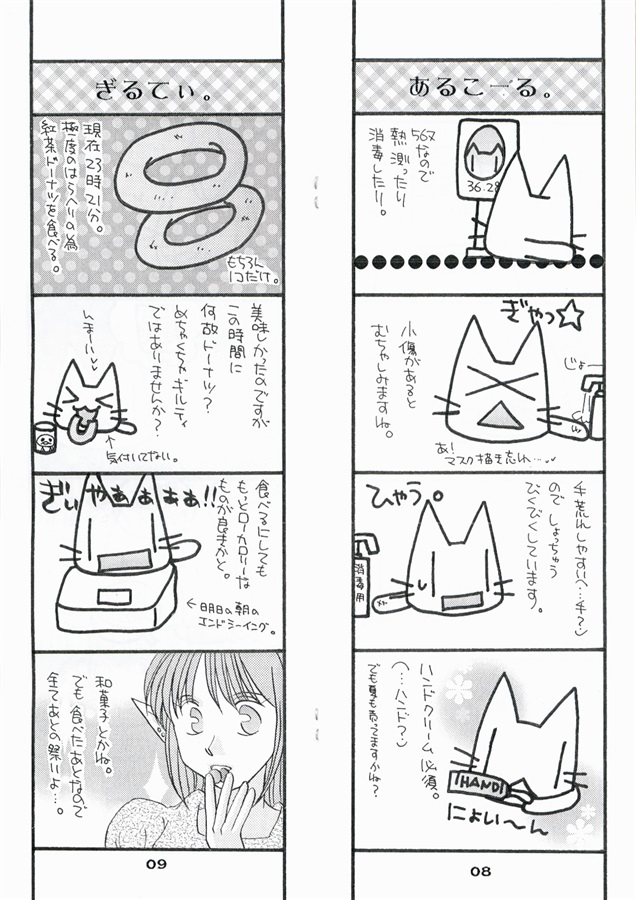 あるこーる。
56&なので
熱測ったり
消毒したり。
36.28
ぎゃっ☆
じょ
小傷があると
むちゃしみますね。
あ!
マスク描き忘れ…
手荒れしやすい(…手?)
ので しょっちゅう
びくびくしています。
ひゃう。
消毒用
ハンドクリーム必須。
(…ハンド?)
でも夏も売ってますかね?
HAND
にょい〜ん
08
ぎるてぃ。
現在23時21分。
極度のはらへりの為
紅茶ドーナツを食べる。
もちろん
1コだけ。
美味しかったのですが
この時間に
何故ドーナツ?
めちゃくちゃギルティ
ではありませんか?
んまーい
↑
気付いてない。
食べるにしても
もっとローカロリーな
ものが良まかと。
ぎぃやぁぁぁぁ!!
←明日の朝の
エンドシーイング。
和菓子とかね。
でも食べたあとなので
全てあとの祭いよ…。
09